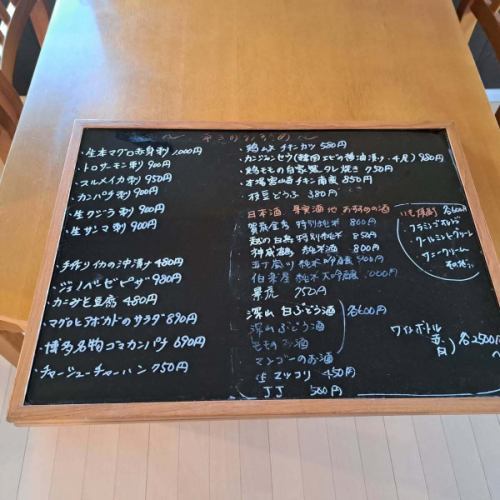 ・生本マグロ赤身刺 1000円
・トロサーモン刺 900円
・スルメイカ刺 950円
・カンパチ刺 900円
・生クジラ刺 900円
・生サンマ刺 900円
・手作りイカの沖漬け 480円
・ジェノベーゼピザ 980円
・カニみそ豆腐 480円
・マグロとアボカドのサラダ 890円
・博多名物ゴマカンパチ 690円
・チャーシューチャーハン 750円
・鶏ムネチキンカツ 580円
・カンジャンセウ(韓国エビの醤油漬け・4尾) 980円
・鶏モモの自家製タレ焼き 750円
・本場宮崎チキン南蛮 850円
・枝豆どうふ 380円
日本酒 果実酒 他 おすすめの酒
賀茂金秀 特別純米 800円
越の白鳥 特別純米 850円
神蔵 純米酒 800円
五十嵐川 純米吟醸
伯楽星 純米大吟醸 1000円
景虎 750円
深山 白ぶどう酒
深山 ぶどう酒
ももの お酒
マンゴーのお酒
各600円
生マッコリ 450円
JJ 500円
いも焼酎 各600円
フラミンゴオレンジ
クールミントグリーン
サニークリーム
その他
ワインボトル
赤
白
各2500円